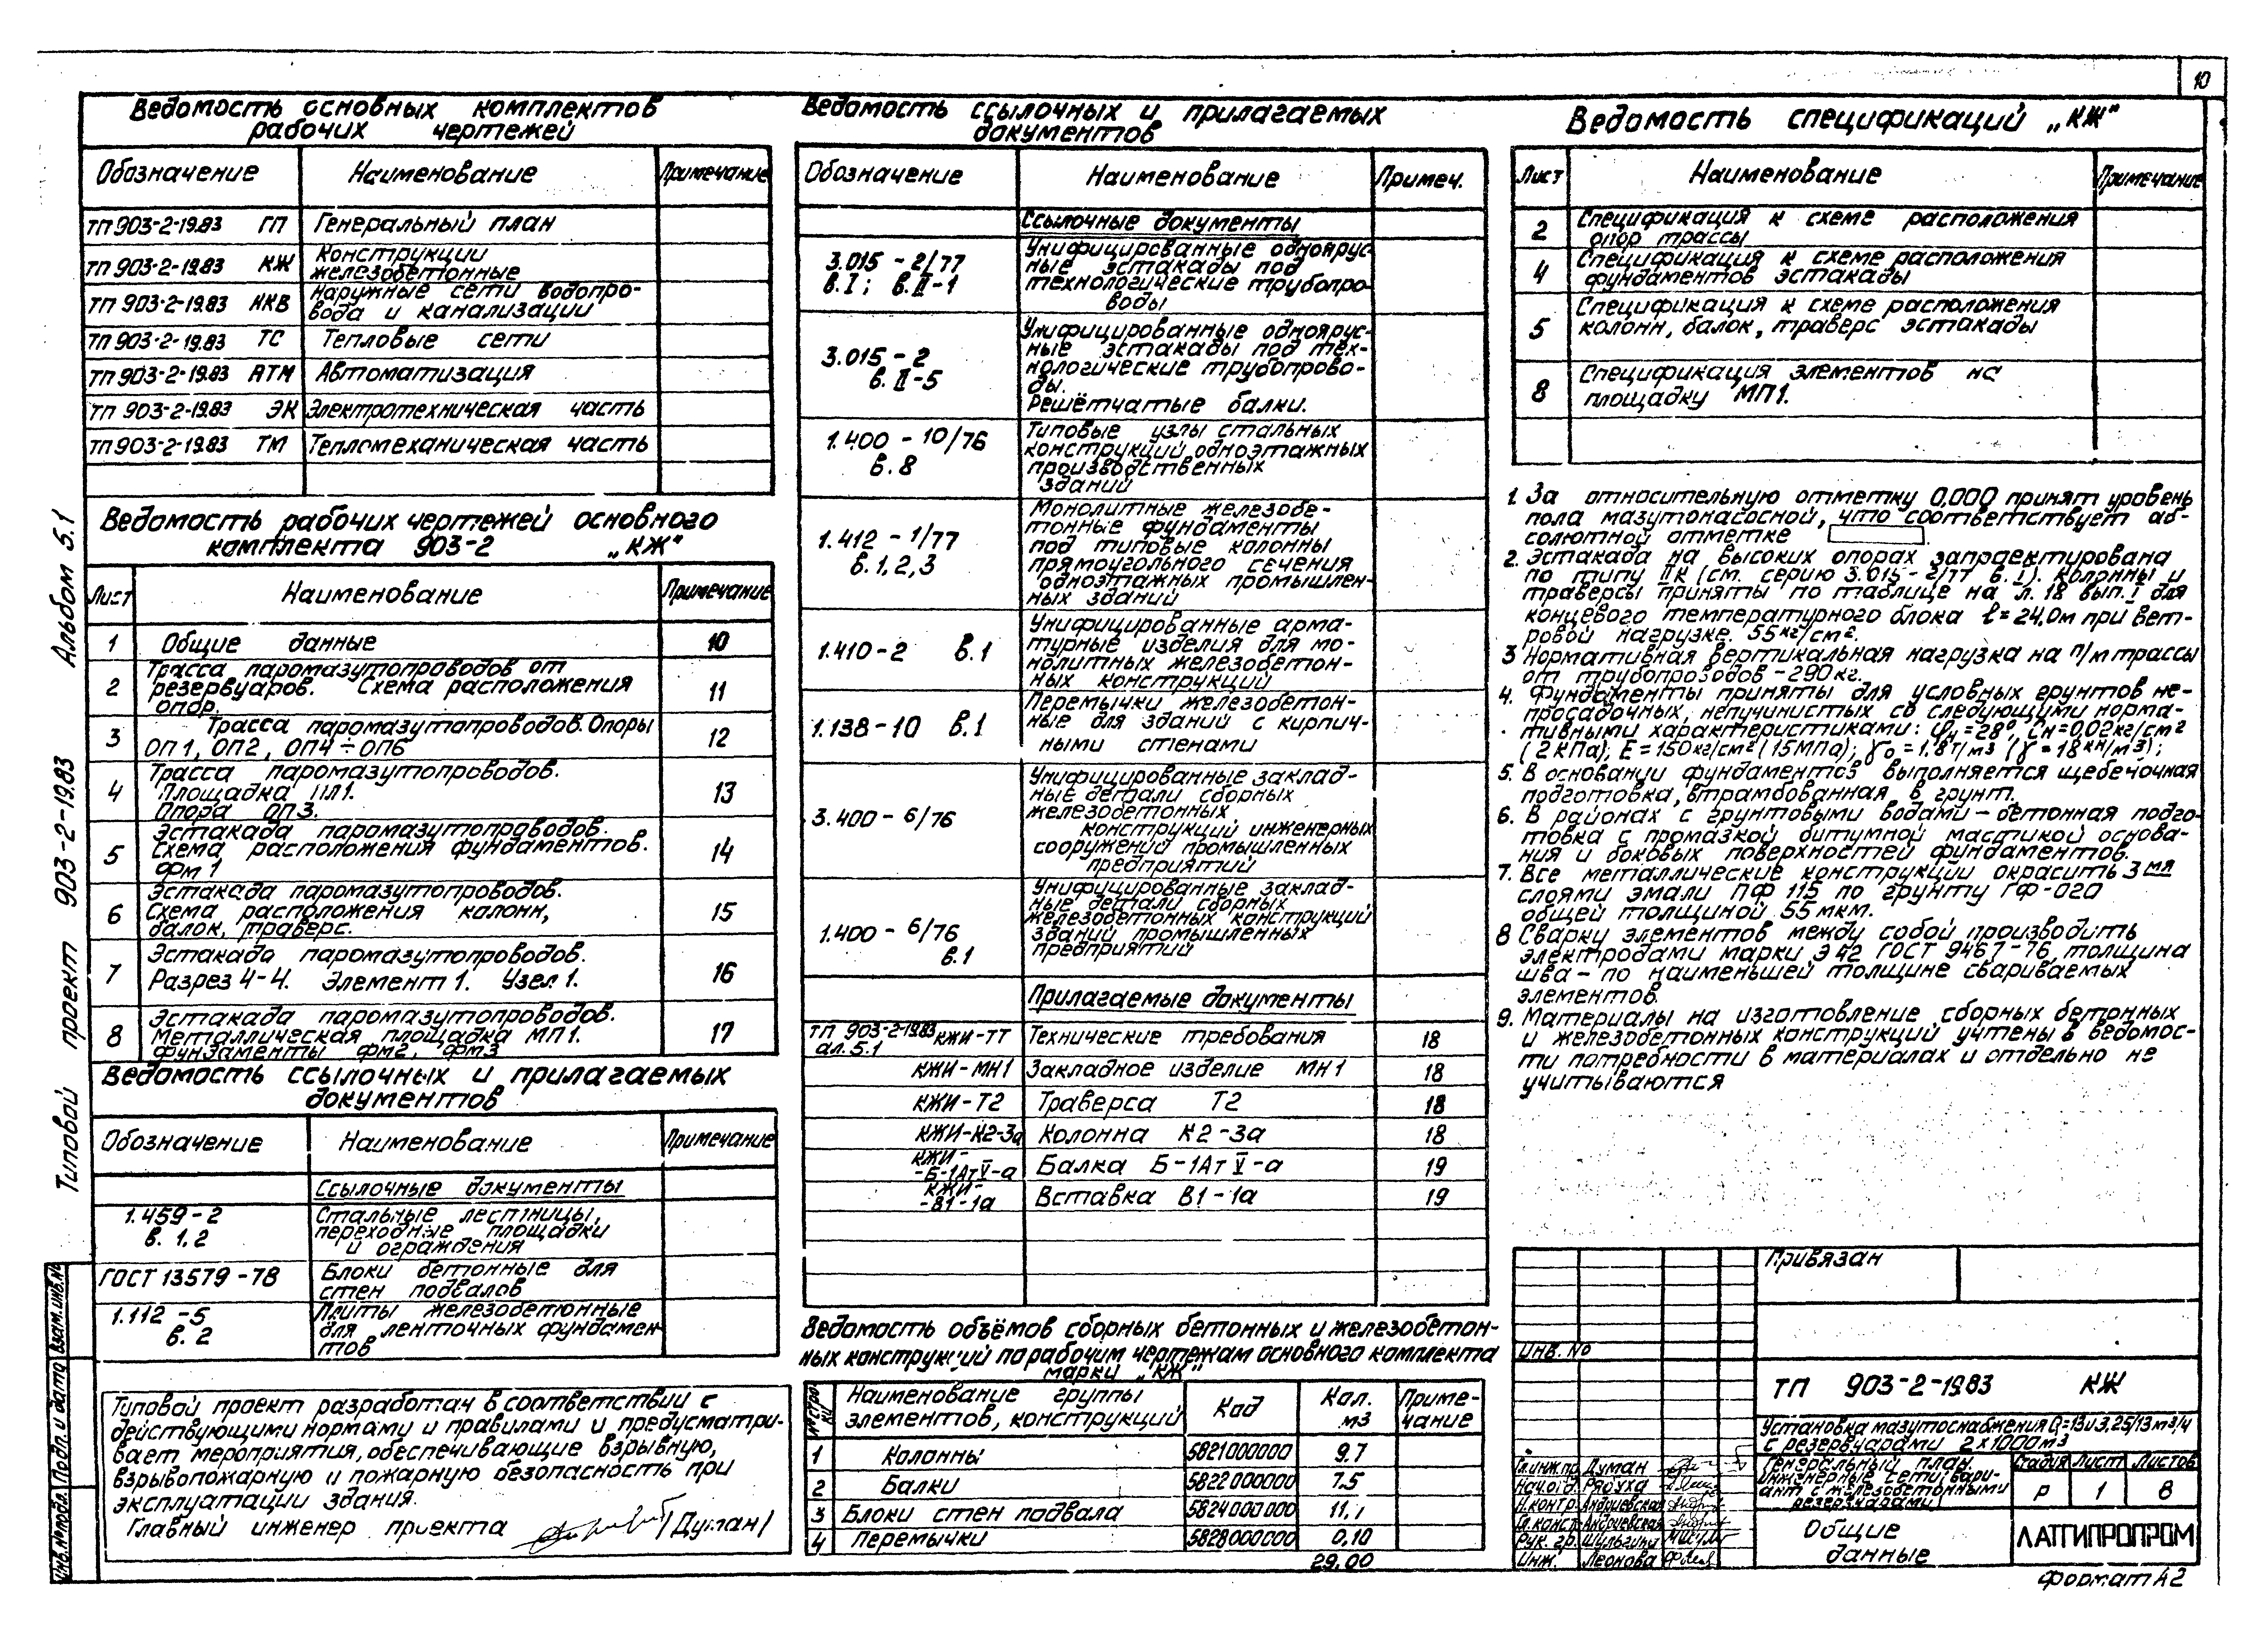 10
Альбом 5.1
Типовой проект 903-2-19.83
Ведомость основных комплектов
рабочих чертежей
Обозначение Наименование Примечание
ТП 903-2-19.83 ГП Генеральный план
ТП 903-2-19.83 КЖ Конструкции
железобетонные
ТП 903-2-19.83 НКВ Наружные сети водопро-
вода и канализации
ТП 903-2-19.83 ТС Тепловые сети
ТП 903-2-19.83 АТМ Автоматизация
ТП 903-2-19.83 ЭК Электротехническая часть
ТП 903-2-19.83 ТМ Тепломеханическая часть
Ведомость рабочих чертежей основного
комплекта 903-2 „КЖ"
Лист Наименование Примечание
1 Общие данные 10
2 Трасса паромазутопроводов от
резервуаров. Схема расположения
опор. 11
3 Трасса паромазутопроводов. Опоры
ОП1, ОП2, ОП4÷ОП6 12
4 Трасса паромазутопроводов.
Площадка ПЛ1.
Опора ОП3. 13
5 Эстакада паромазутопроводов.
Схема расположения фундаментов.
Фм1 14
6 Эстакада паромазутопроводов.
Схема расположения колонн,
балок, траверс. 15
7 Эстакада паромазутопроводов.
Разрез 4-4. Элемент 1. Узел 1. 16
8 Эстакада паромазутопроводов.
Металлическая площадка МП1.
Фундаменты Фм2, Фм3 17
Ведомость ссылочных и прилагаемых
документов
Обозначение Наименование Примечание
Ссылочные документы
1.459-2
в. 1,2
Стальные лестницы,
переходные площадки
и ограждения
ГОСТ 13579-78 Блоки бетонные для
стен подвалов
1.112-5
в. 2
Плиты железобетонные
для ленточных фундамен-
тов
Типовой проект разработан в соответствии с
действующими нормами и правилами и предусматри-
вает мероприятия, обеспечивающие взрывную,
взрывопожарную и пожарную безопасность при
эксплуатации здания.
Главный инженер проекта /Думан/
Инв.№подл. Подп. и дата Взам.инв.№
Ведомость ссылочных и прилагаемых
документов
Обозначение Наименование Примеч.
Ссылочные документы
3.015-2/77
в.I; в.II-1
Унифицированные одноярус-
ные эстакады под
технологические трубопро-
воды
3.015-2
в. II-5
Унифицированные одноярус-
ные эстакады под тех-
нологические трубопрово-
ды.
Решётчатые балки.
1.400-10/76
в. 8
Типовые узлы стальных
конструкций одноэтажных
производственных
зданий
1.412-1/77
в. 1,2,3
Монолитные железобе-
тонные фундаменты
под типовые колонны
прямоугольного сечения
одноэтажных промышлен-
ных зданий
1.410-2 в.1
Унифицированные арма-
турные изделия для мо-
нолитных железобетон-
ных конструкций
1.138-10 в.1
Перемычки железобетон-
ные для зданий с кирпич-
ными стенами
3.400-6/76
Унифицированные заклад-
ные детали сборных
железобетонных
конструкций инженерных
сооружений промышленных
предприятий
1.400-6/76
в.1
Унифицированные заклад-
ные детали сборных
железобетонных конструкций
зданий промышленных
предприятий
Прилагаемые документы
ТП 903-2-19.83 КЖИ-ТТ
ал. 5.1
Технические требования 18
КЖИ-МН1 Закладное изделие МН1 18
КЖИ-Т2 Траверса Т2 18
КЖИ-К2-3а Колонна К2-3а 18
КЖИ-
-Б-1АтV-а Балка Б-1АтV-а 19
КЖИ-
-В1-1а Вставка В1-1а 19
Ведомость объёмов сборных бетонных и железобетон-
ных конструкций по рабочим чертежам основного комплекта
марки „КЖ"
№ строки
Наименование группы
элементов, конструкций
Код
Кол.
м3
Приме-
чание
1 Колонны 5821000000 9.7
2 Балки 5822000000 7.5
3 Блоки стен подвала 5824000000 11,7
4 Перемычки 5828000000 0,10
29.00
Ведомость спецификаций „КЖ"
Лист Наименование Примечание
2 Спецификация к схеме расположения
опор трассы
4 Спецификация к схеме расположения
фундаментов эстакады
5 Спецификация к схеме расположения
колонн, балок, траверс эстакады
8 Спецификация элементов на
площадку МП1.
1. За относительную отметку 0,000 принят уровень
пола мазутонасосной, что соответствует аб-
солютной отметке
2. Эстакада на высоких опорах запроектирована
по типу IIк (см. серию 3.015-2/77 в. I). Колонны и
траверсы приняты по таблице на л. 18 вып. I для
концевого температурного блока ℓ=24,0м при вет-
ровой нагрузке 55кг/см².
3 Нормативная вертикальная нагрузка на п/м трассы
от трубопроводов -290кг.
4. Фундаменты приняты для условных грунтов не-
просадочных, непучинистых со следующими норма-
тивными характеристиками: φн=28°, Сн=0,02кг/см²
(2КПа); Е=150кг/см² (15МПа); γо=1,8т/м3 (γ=18кн/м3);
5. В основании фундаментов выполняется щебеночная
подготовка, втрамбованная в грунт.
6. В районах с грунтовыми водами – бетонная подго-
товка с промазкой битумной мастикой основа-
ния и боковых поверхностей фундаментов.
7. Все металлические конструкции окрасить 3мя
слоями эмали ПФ 115 по грунту ГФ-020
общей толщиной 55 мкм.
8 Сварку элементов между собой производить
электродами марки Э42 ГОСТ 9467-76, толщина
шва – по наименьшей толщине свариваемых
элементов.
9. Материалы на изготовление сборных бетонных
и железобетонных конструкций учтены в ведомос-
ти потребности в материалах и отдельно не
учитываются
Привязан
Инв. №
ТП 903-2-19.83 КЖ
Установка мазутоснабжения Q=13и3,25/13м3/ч
с резервуарами 2x1000м3
Гл.инж.пр. Думан
Нач.отд. Рябуха
Н.контр. Андриевская
Гл. конст. Андриевская
Рук. гр. Шульгина
Инж. Леонова
Генеральный план.
Инженерные сети (вари-
ант с железобетонными
резервуарами)
Стадия Лист Листов
Р 1 8
Общие
данные
ЛАТГИПРОПРОМ
Формат А2